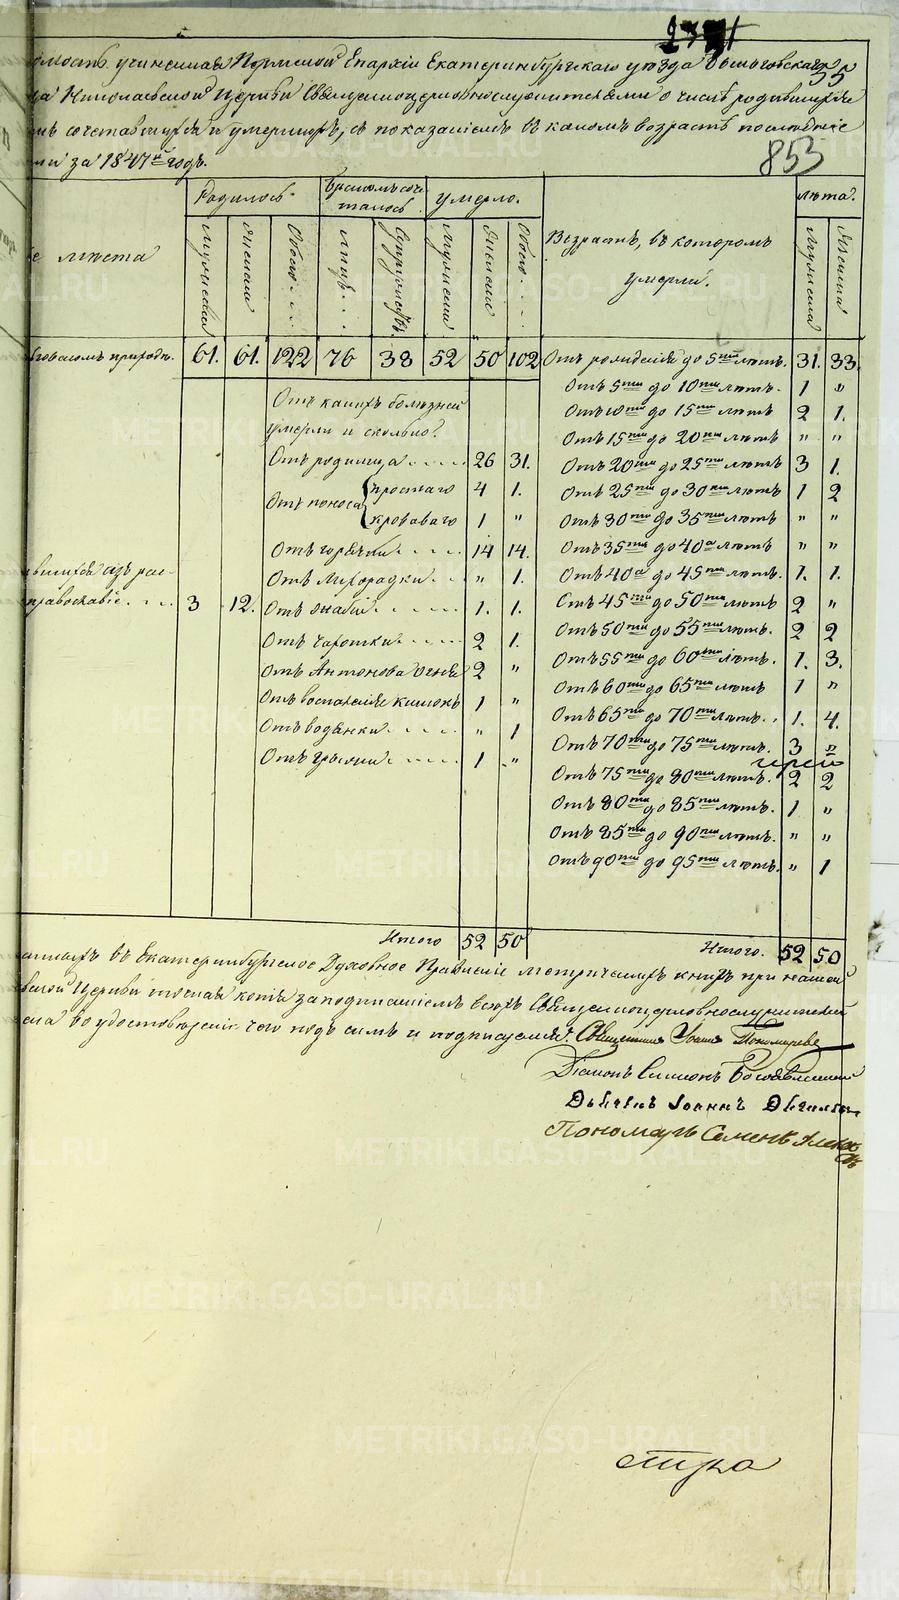 853
омость учиненная Пермской Епархіи Екатеринбургскаго уѣзда
да Николаевской Церкви Священноцерковнослужителями о числѣ родившихся
мъ сочетавшихся и умершихъ, съ показаніемъ въ каком возрастѣ послѣдніе
ли за 1847й годъ.
Родилось. Бракомъ соче-талось Умерло. Лѣта.
е мѣста Мужеска Женска Обоего Лицъ Супружествъ Мужеска Женска Обоего Возрастъ, въ которомъ умерли. Мужеска Женска
приходѣ. 61. 61. 122 76 38 52 50 102 Отъ рожденія до 5ти лѣтъ. 31. 33.
Отъ 5ти до 10ти лѣтъ. 1 "
Отъ какихъ болѣзней
умерли и сколько?
Отъ 10ти до 15ти лѣтъ 2 1.
Отъ 15ти до 20ти лѣтъ " "
Отъ родимца 26 31. Отъ 20ти до 25ти лѣтъ 3 1.
Отъ поноса простаго 4 1. Отъ 25ти до 30ти лѣтъ 1 2
кроваваго 1 " Отъ 30ти до 35ти лѣтъ " "
Отъ горячки 14 14. Отъ 35ти до 40а лѣтъ " "
Отъ лихорадки " 1. Отъ 40а до 45ти лѣтъ. 1. 1.
вшихся изъ рас-
православіе 3 12. Отъ 1. 1. Отъ 45ти до 50ти лѣтъ 2 "
Отъ чахотки 2 1. Отъ 50ти до 55ти лѣтъ. 2 2
Отъ Антонова огня 2 " Отъ 55ти до 60ти лѣтъ. 1. 3.
Отъ воспаленія кишокъ 1 " Отъ 60ти до 65ти лѣтъ 1 "
Отъ водянки " 1 Отъ 65ти до 70ти лѣтъ. 1. 4.
Отъ грыжи 1 " Отъ 70ти до 75ти лѣтъ. 3 "
Отъ 75ти до 80ти лѣтъ. 2 2
Отъ 80ти до 85ти лѣтъ. 1 "
Отъ 85ти до 90ти лѣтъ. " "
Отъ 90ти до 95ти лѣтъ. " 1
Итого 52 50 Итого. 52 50
въ Екатеринбургское Духовное Правленіе метрическихъ книгъ при нашей
вской Церкви точная копія за подписаніемъ всѣхъ Священноцерковнослужителей
во удостовѣреніе чего подъ симъ и подписуемся. Священникъ Іоаннъ Пономаревъ
Діаконъ Симеонъ Богоявленскій
Дьячекъ Іоаннъ
Пономарь Семенъ
METRIKI.GASO-URAL.RU